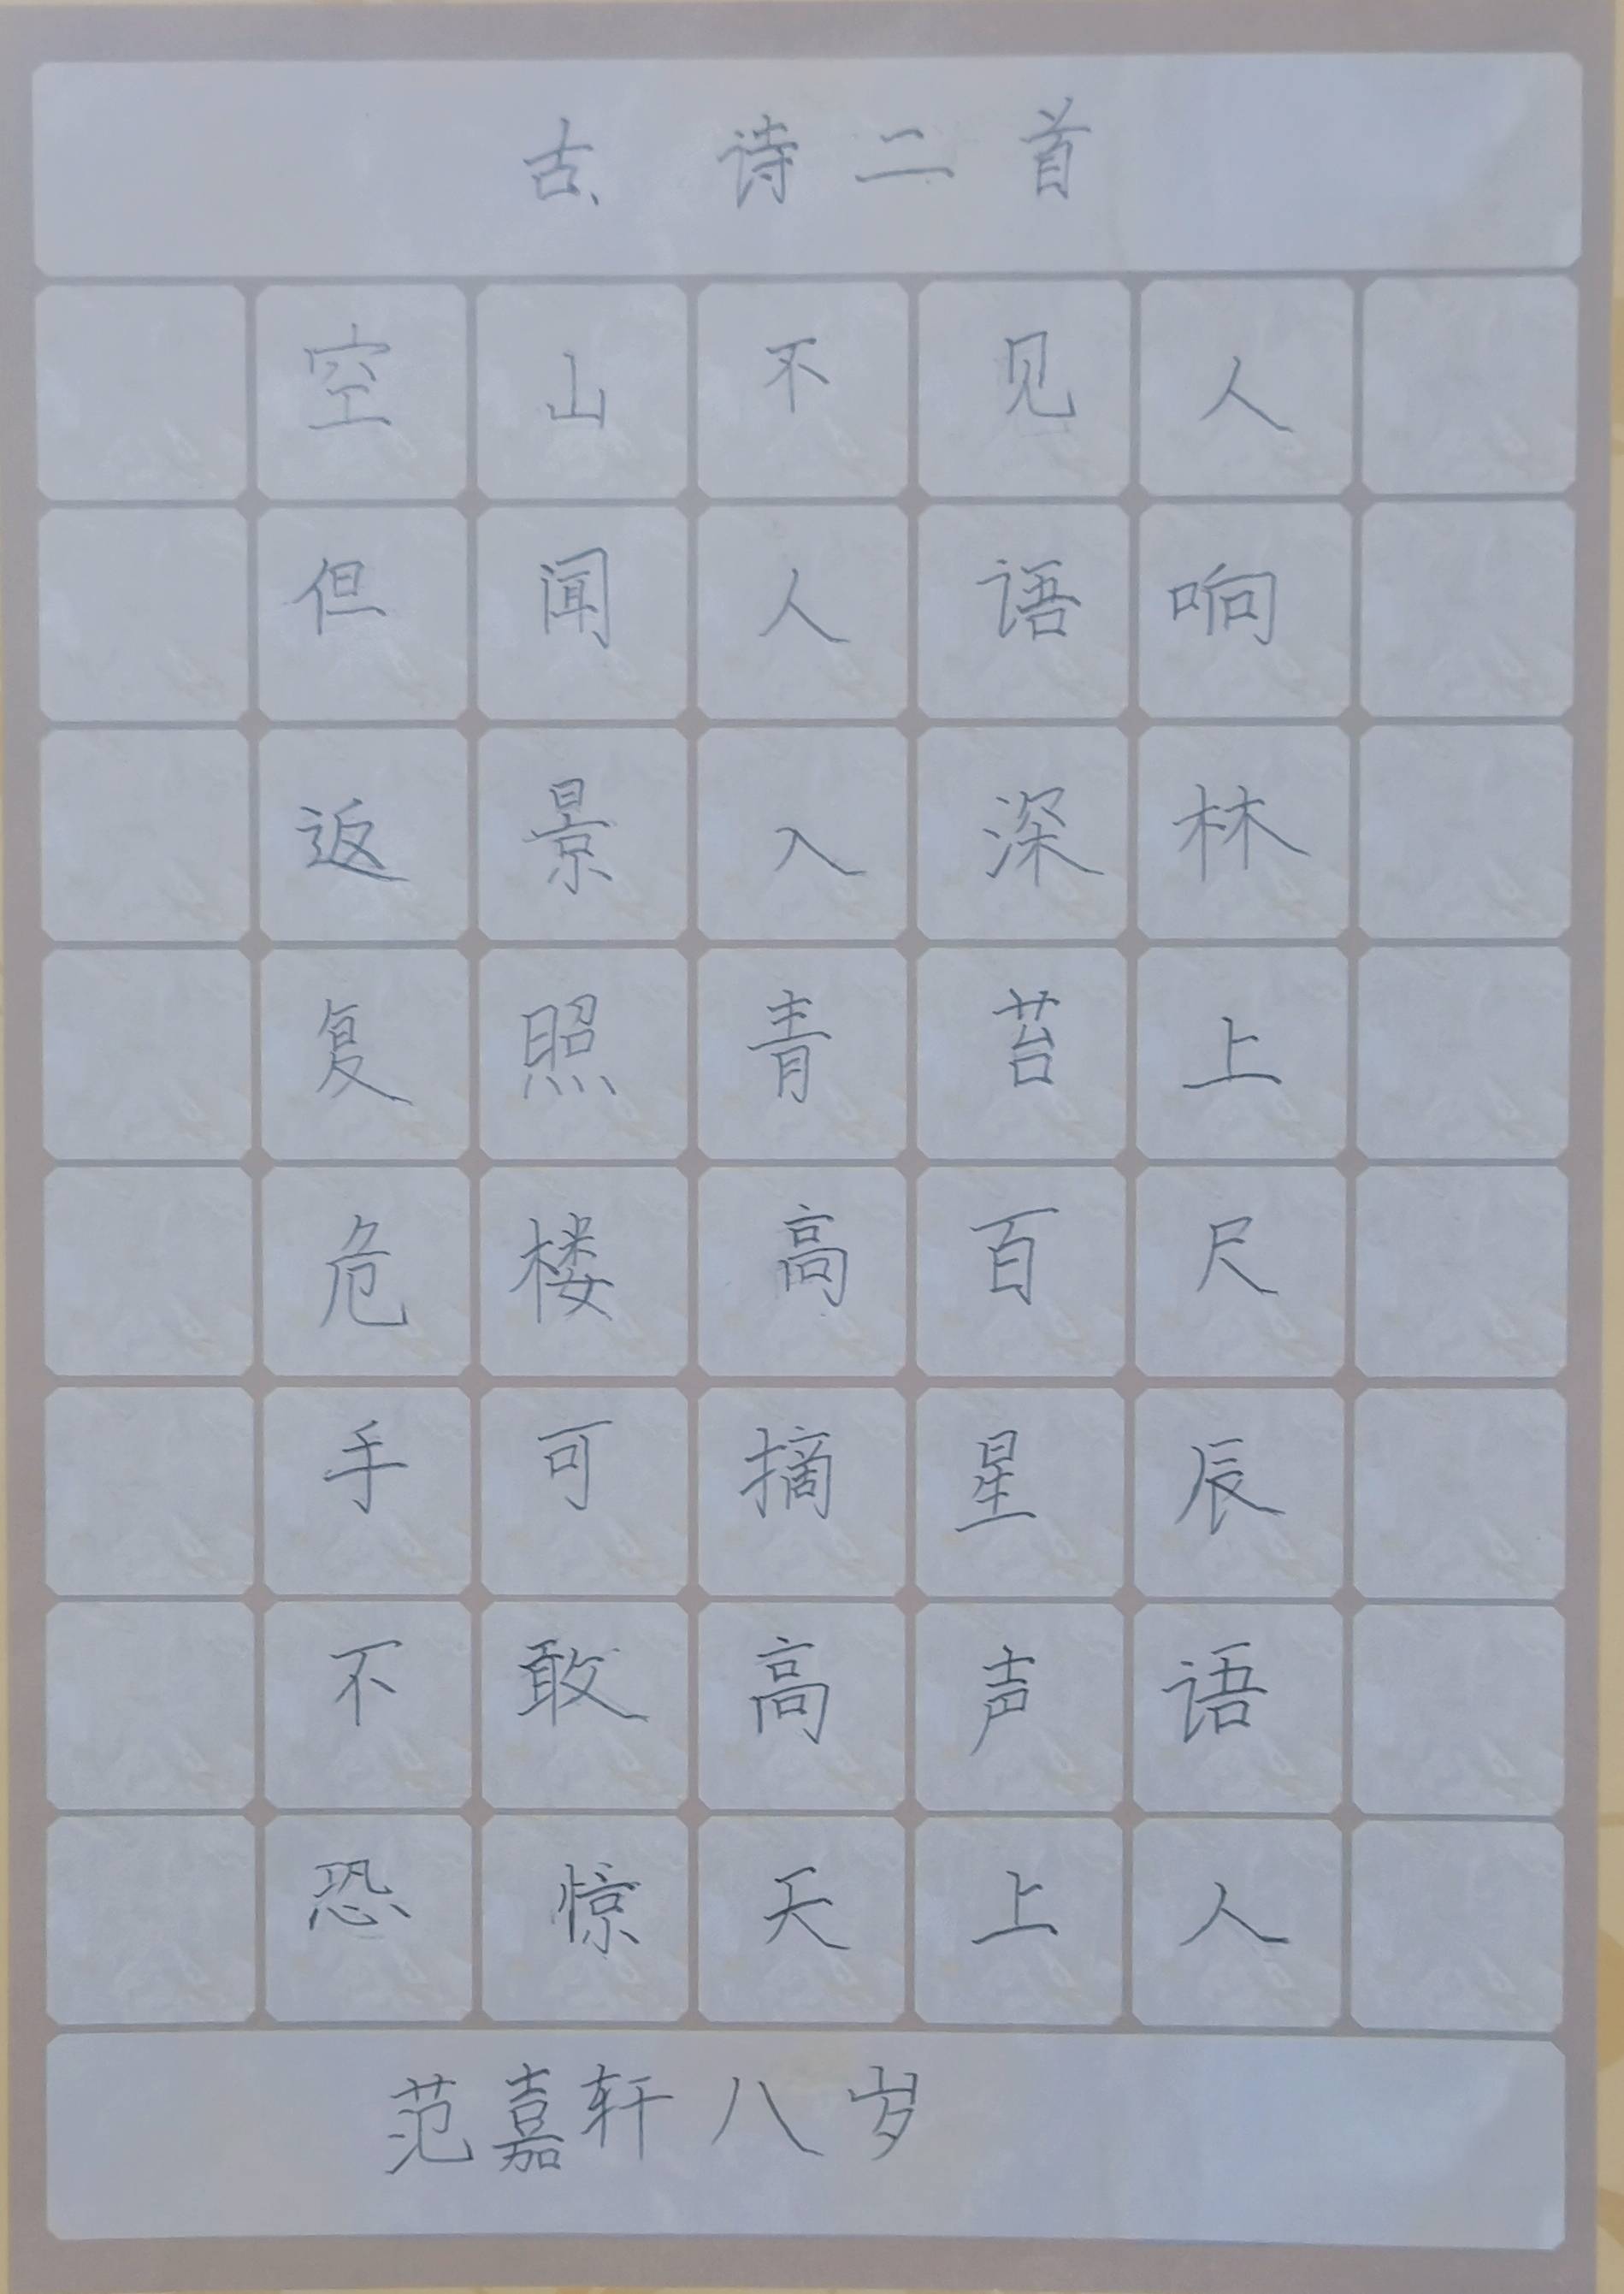 古诗二首
空山不见人
但闻人语响
返景入深林
复照青苔上
危楼高百尺
手可摘星辰
不敢高声语
恐惊天上人
范嘉轩八岁